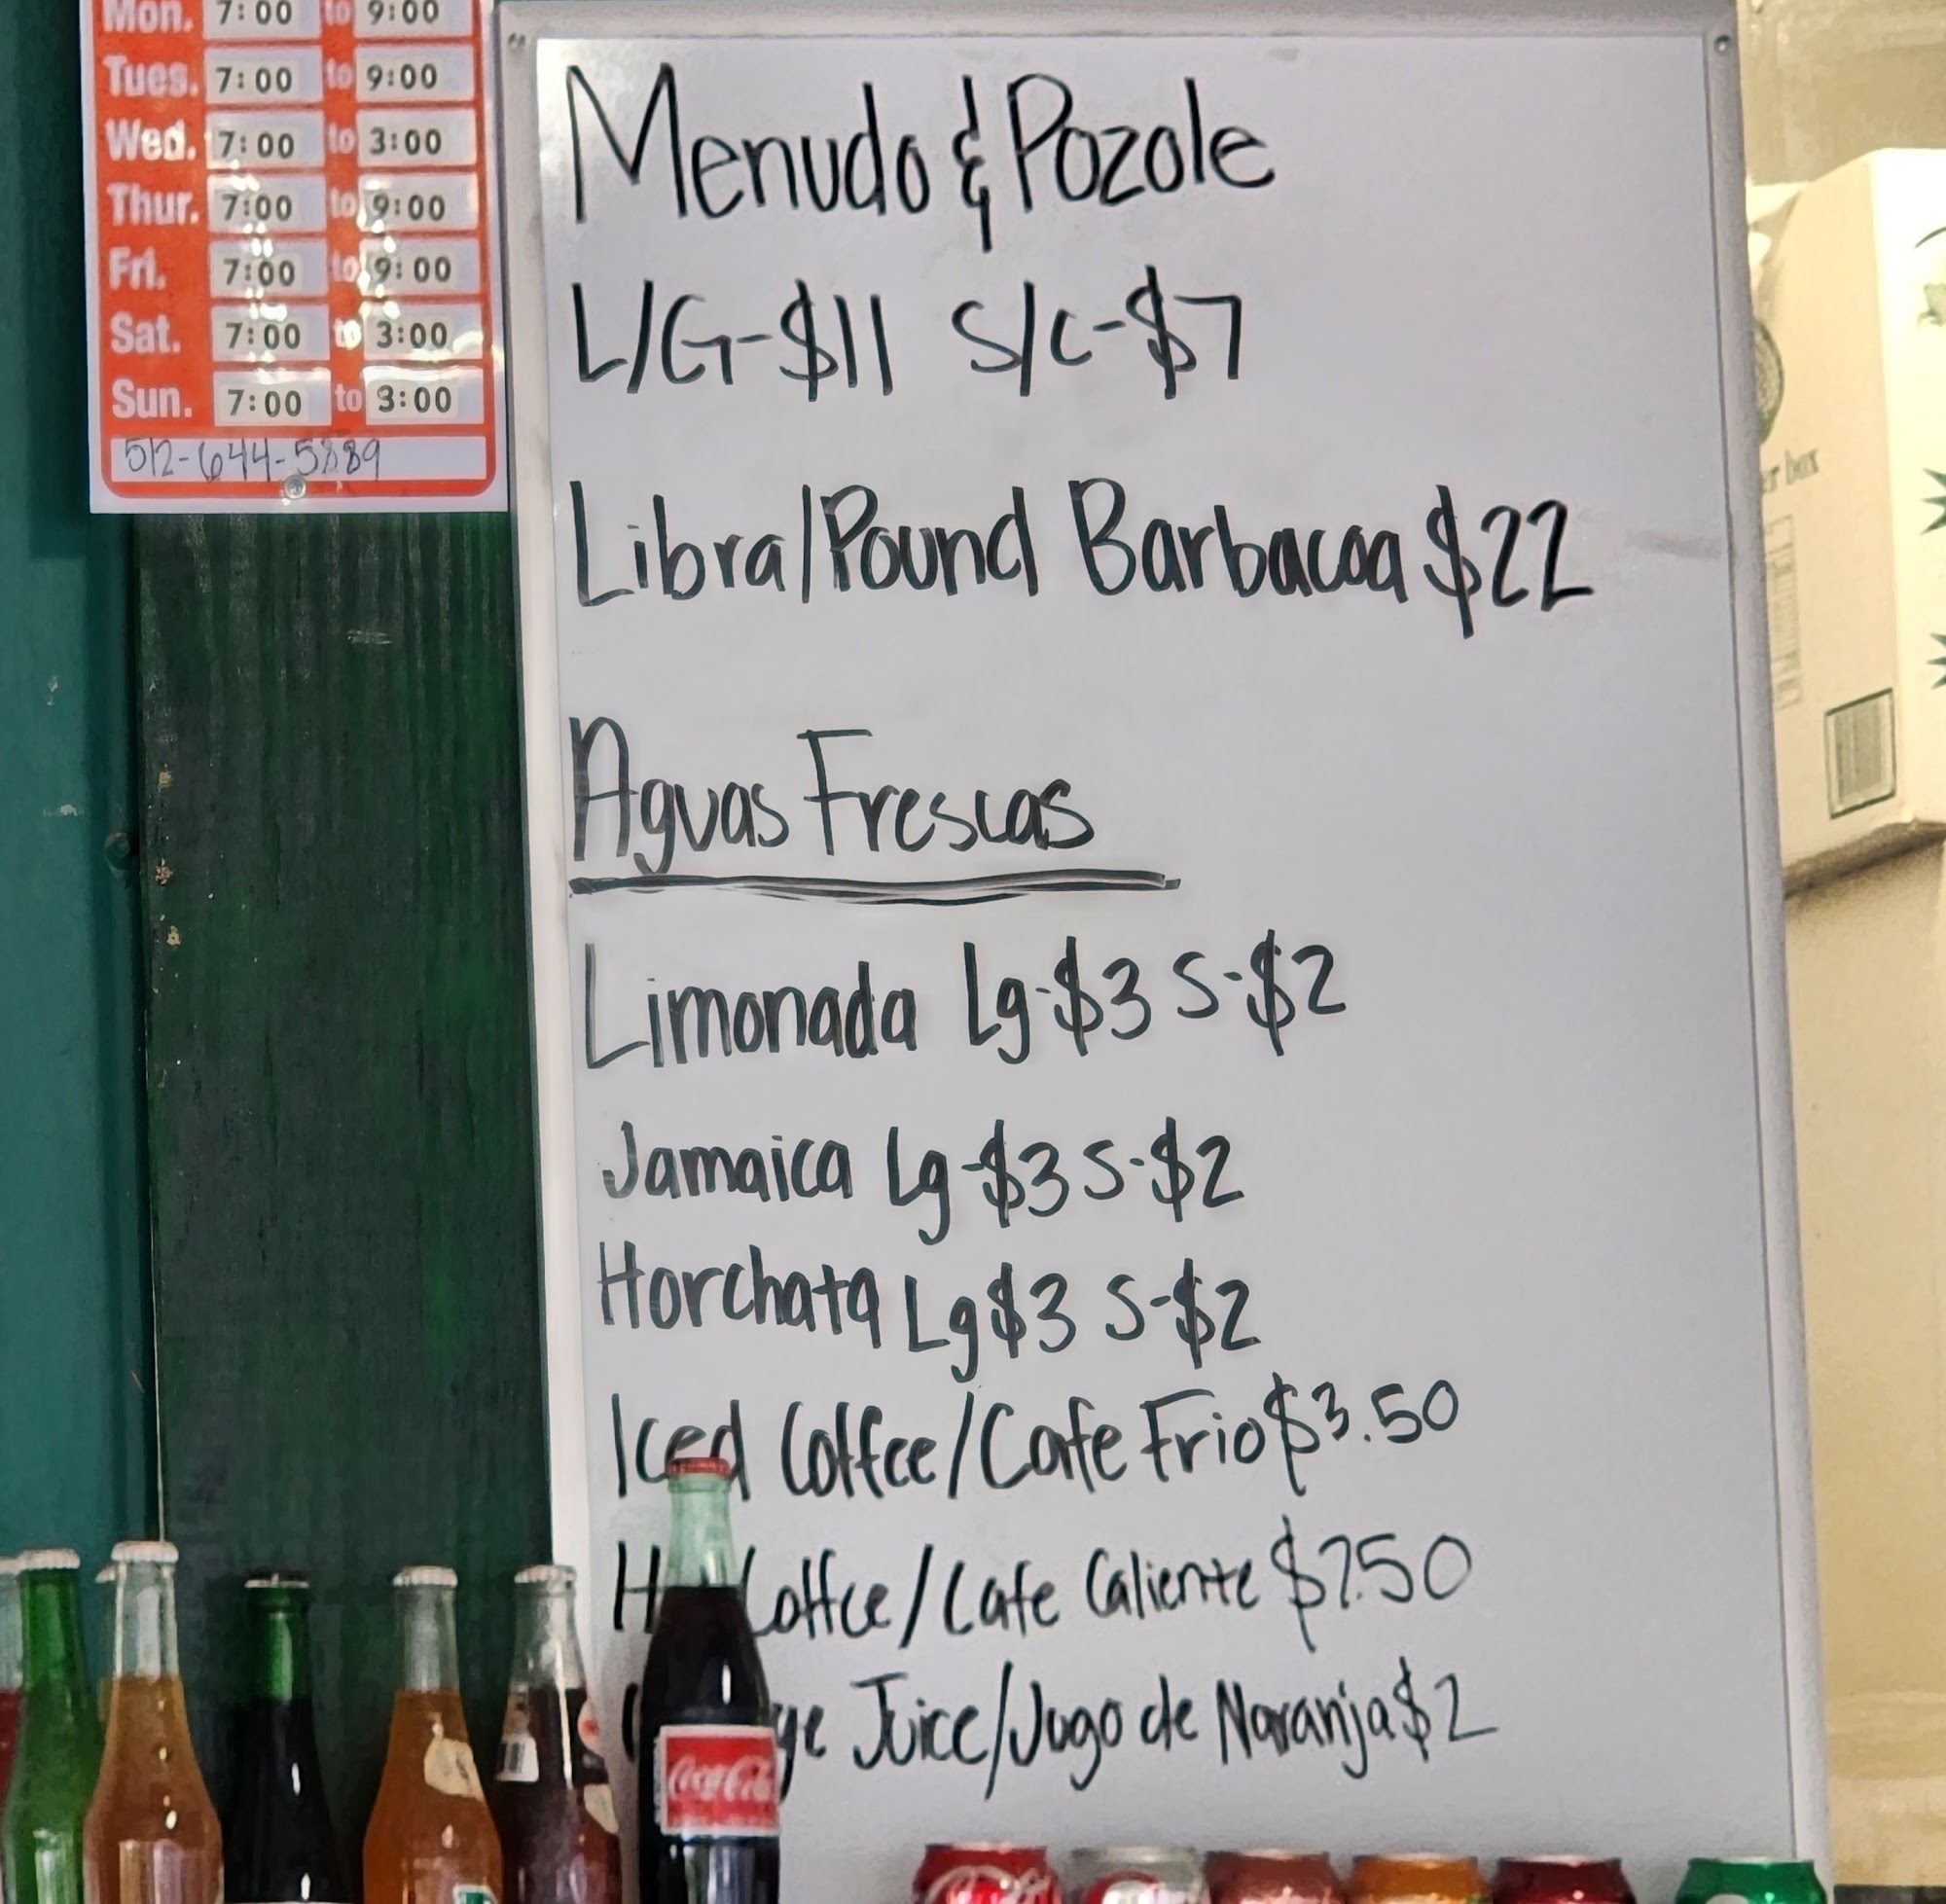 Mon. 7:00 to 9:00
Tues. 7:00 to 9:00
Wed. 7:00 to 3:00
Thur. 7:00 to 9:00
Fri. 7:00 to 9:00
Sat. 7:00 to 3:00
Sun. 7:00 to 3:00
Menudo & Pozole
L/G-$11 S/C-$7
Libra/Pound Barbacoa $22
Aguas Frescas
Limonada Lg-$3 S-$2
Jamaica Lg-$3 S-$2
Horchata Lg $3 S-$2
Iced Coffee/Cafe Frio $3.50
Coffee/Cafe Caliente
Juice/Jugo de Naranja $2
Coca-Cola